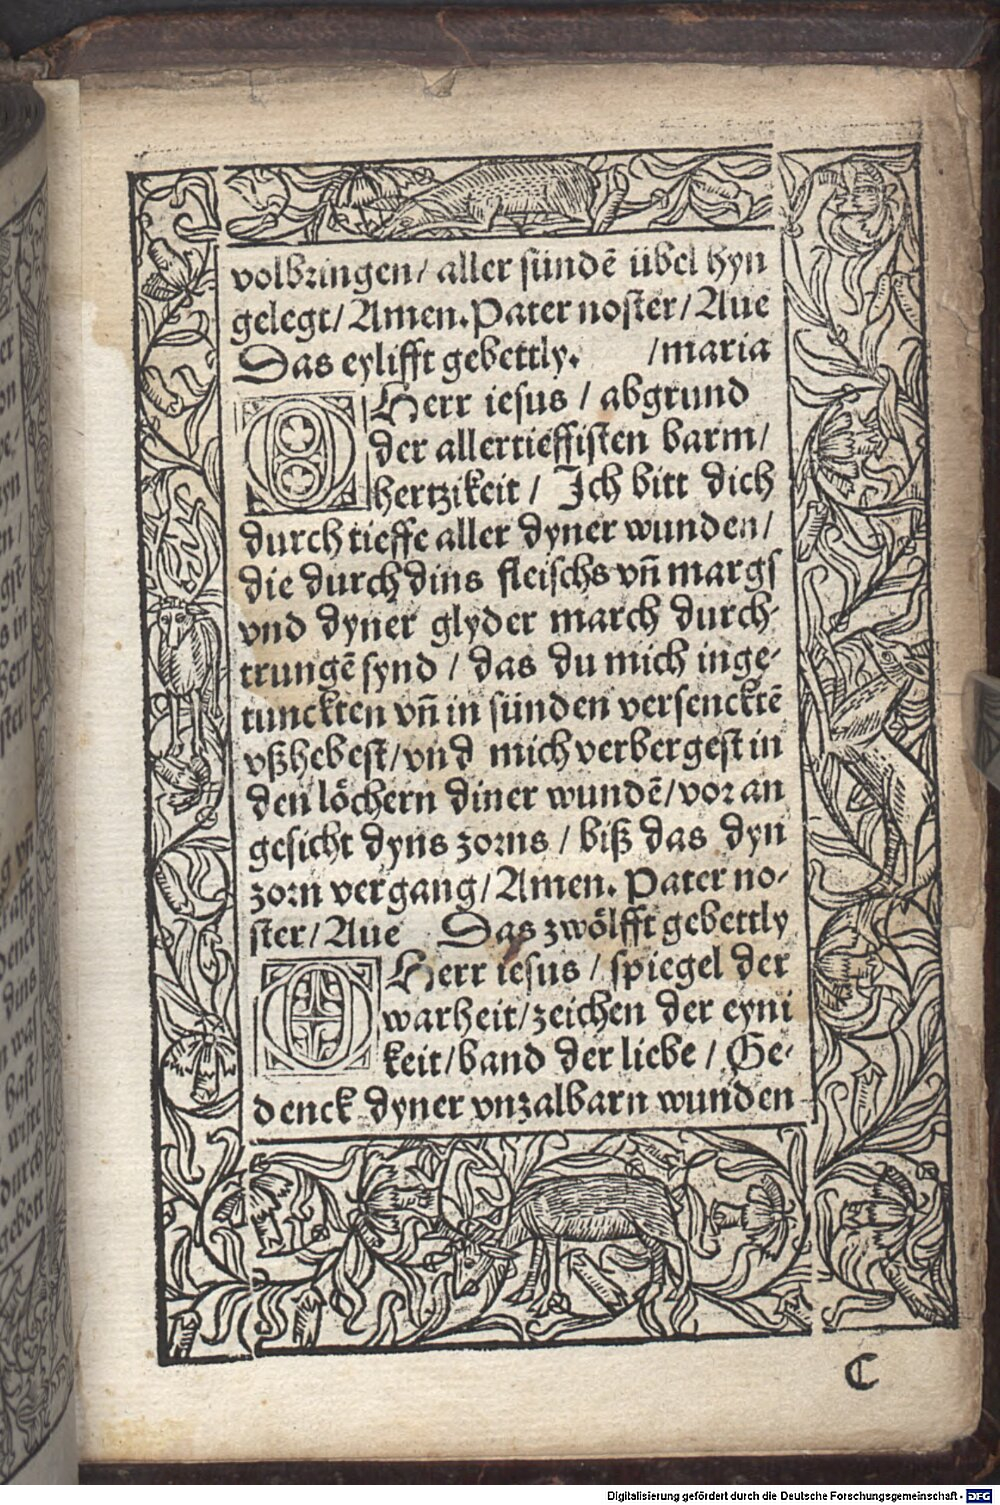 volbringen/ aller sündē übel hyn
gelegt/ Amen. Pater noster/ Aue
Das eylifft gebettly. /maria
O Herr iesus / abgrund
der allertieffisten barm/
hertzikeit / Ich bitt dich
durch tieffe aller dyner wunden/
die durch dins fleischs vn̄ margs
vnd dyner glyder march durch-
trungē synd / das du mich inge-
tunckten vn̄ in sünden versencktē
vßhebest/ vnd mich verbergest in
den löchern diner wundē/ vor an
gesicht dyns zorns / biß das dyn
zorn vergang/ Amen. Pater no-
ster/ Aue Das zwölfft gebettly
O Herr iesus / spiegel der
warheit/ zeichen der eyni
keit/ band der liebe / Ge-
denck dyner vnzalbarn wunden
C
Digitalisierung gefördert durch die Deutsche Forschungsgemeinschaft - DFG